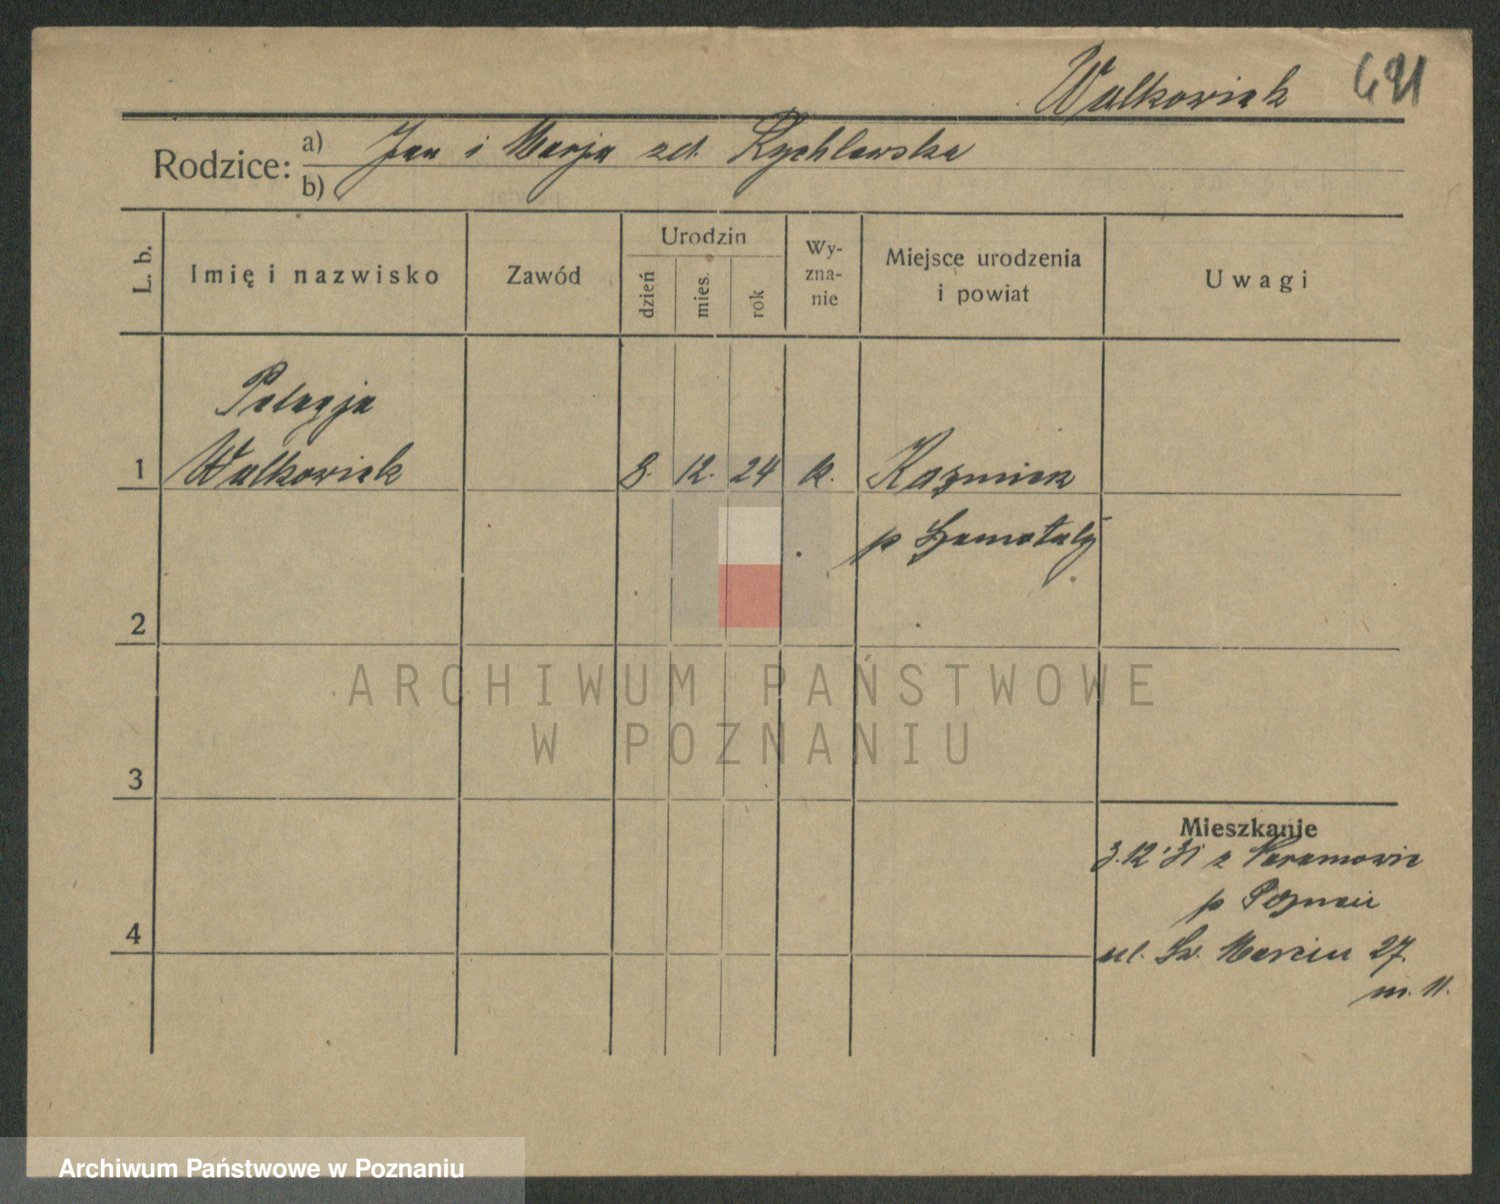 Walkowiak 691
Rodzice: a) Jan i Marja zd. Rychlewska
b)
L. b.
Imię i nazwisko
Zawód
Urodzin
dzień
mies.
rok
Wy-
zna-
nie
Miejsce urodzenia
i powiat
Uwagi
Pelagja
1 Walkowiak 8. 12. 24 k. Kazmierz
p Szamotuły
2
3
4
ARCHIWUM PAŃSTWOWE
W POZNANIU
Mieszkanie
3.12.31 z Naramowic
p Poznań
ul. Św. Marcin 27.
m. 11.
Archiwum Państwowe w Poznaniu